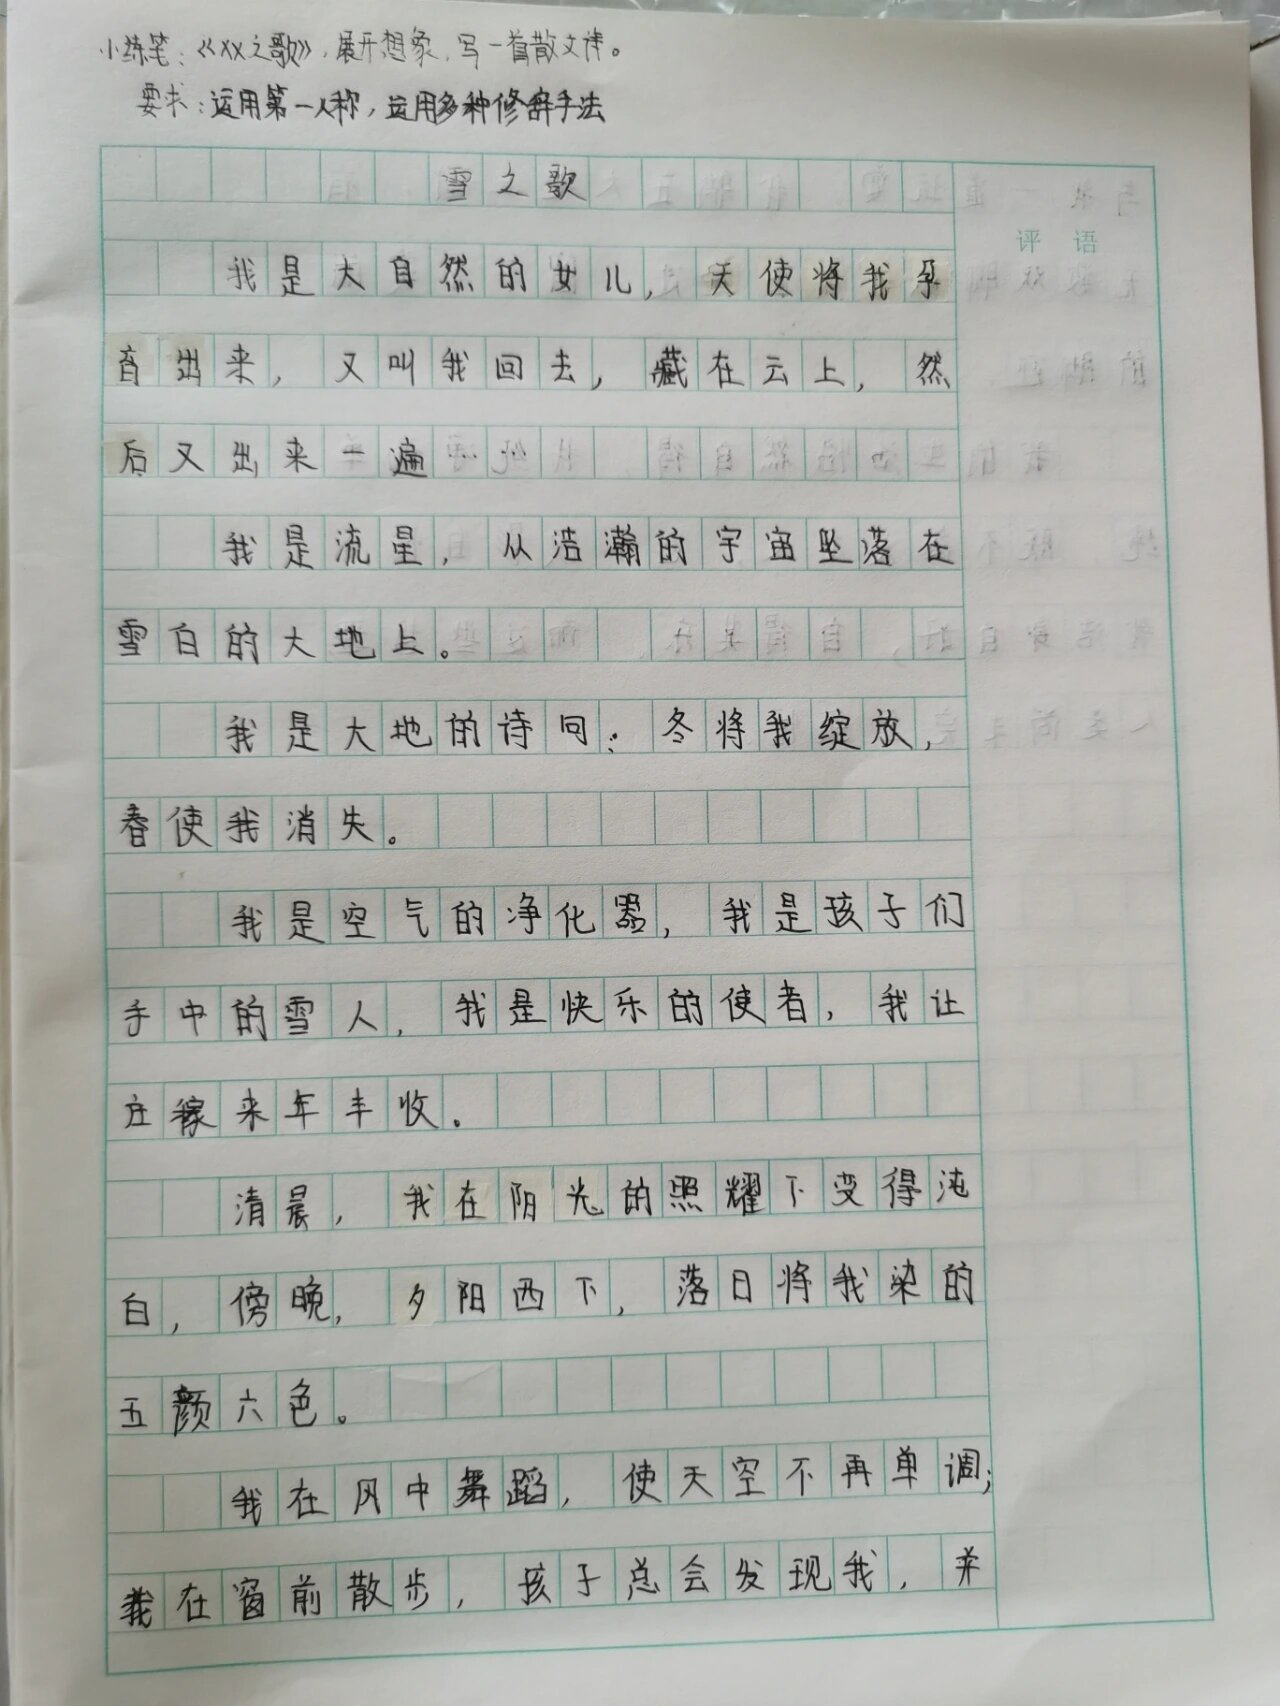 小练笔：《XX之歌》，展开想象，写一首散文诗。
要求：运用第一人称，运用多种修辞手法
雪之歌
评语
我是大自然的女儿，天使将我孕
育出来，又叫我回去，藏在云上，然
后又出来一遍
我是流星，从浩瀚的宇宙坠落在
雪白的大地上。
我是大地的诗词：冬将我绽放，
春使我消失。
我是空气的净化器，我是孩子们
手中的雪人，我是快乐的使者，我让
庄稼来年丰收。
清晨，我在阳光的照耀下变得纯
白，傍晚，夕阳西下，落日将我染的
五颜六色。
我在风中舞蹈，使天空不再单调；
我在窗前散步，孩子总会发现我，并